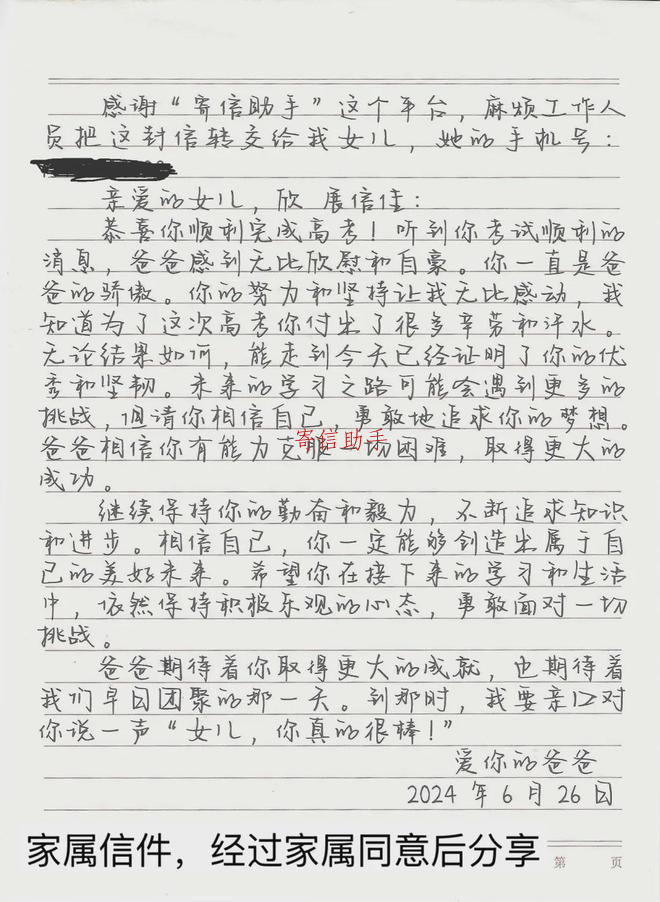 感谢“寄信助手”这个平台，麻烦工作人
员把这封信转交给我女儿，她的手机号：
亲爱的女儿，欣 展信佳：
恭喜你顺利完成高考！听到你考试顺利的
消息，爸爸感到无比欣慰和自豪。你一直是爸
爸的骄傲。你的努力和坚持让我无比感动，我
知道为了这次高考你付出了很多辛劳和汗水。
无论结果如何，能走到今天已经证明了你的优
秀和坚韧。未来的学习之路可能会遇到更多的
挑战，但请你相信自己，勇敢地追求你的梦想。
寄信助手
爸爸相信你有能力克服一切困难，取得更大的
成功。
继续保持你的勤奋和毅力，不断追求知识
和进步。相信自己，你一定能够创造出属于自
己的美好未来。希望你在接下来的学习和生活
中，依然保持积极乐观的心态，勇敢面对一切
挑战。
爸爸期待着你取得更大的成就，也期待着
我们早日团聚的那一天。到那时，我要亲口对
你说一声“女儿，你真的很棒！”
爱你的爸爸
2024 年 6 月 26 日
家属信件，经过家属同意后分享
第 页